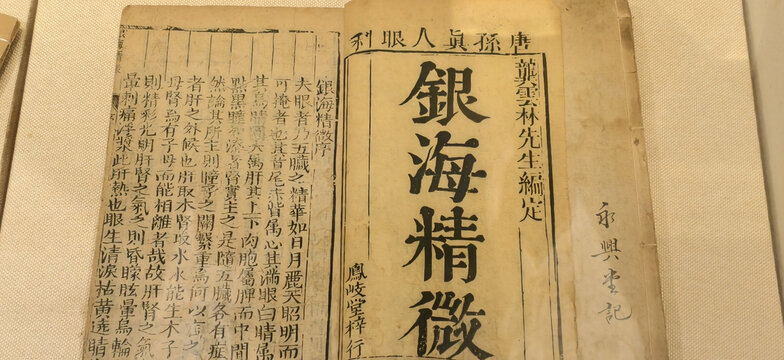 永興堂記
唐孫眞人眼科
龔雲林先生編定
銀海精微
鳳岐堂梓行
銀海精微序
夫眼者乃五臟之精華如日月麗天昭明而
可掩者也其首尾赤眥屬心其滿眼白睛屬
其烏睛圓大屬肝其上下肉胞屬脾而中間
點黑瞳如漆者腎實主之是隨五臟各有症
然論其所主則瞳子之關繫重焉何以言之
者肝之外候也肝取木腎取水水能生木子
母腎焉有子母而能相離者哉故肝腎之氣
則精彩光明肝腎之氣乏則昏朦眩暈烏輪
暈刺痛浮漿此肝熱也眼生清淚枯黃遶睛